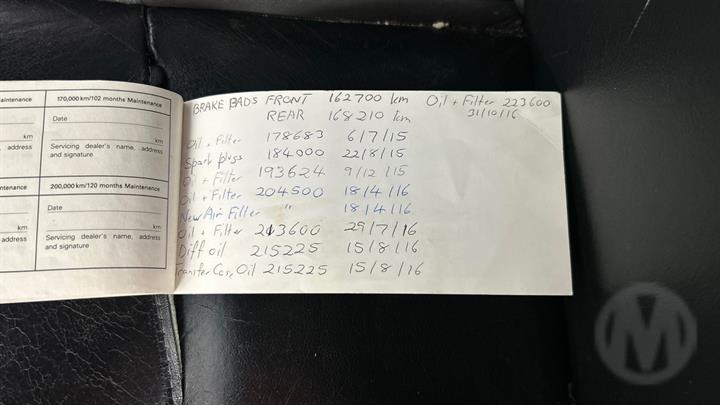 aintenance
170,000 km/102 months Maintenance
Date
km
km
address
Servicing dealer's name, address
and signature
ntenance
200,000 km/120 months Maintenance
Date
km
km
address
Servicing dealer's name, address
and signature
BRAKE PADS FRONT 162700 km
REAR 168210 km
Oil + Filter 178683 6/7/15
Spark plugs 184000 22/8/15
Oil + Filter 193624 9/12/15
Oil + Filter 204500 18/4/16
New Air Filter " 18/4/16
Oil + Filter 213600 29/7/16
Diff oil 215225 15/8/16
Transfer Cas, Oil 215225 15/8/16
Oil + Filter 223600
31/10/16
M